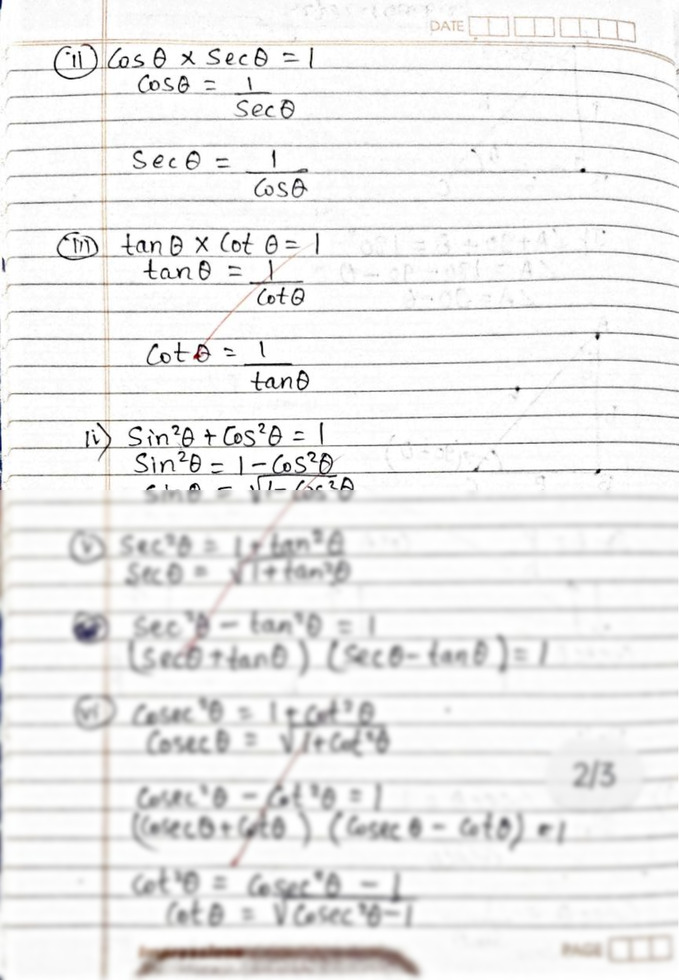 DATE
(ii) Cosθ × Secθ = 1
Cosθ = 1/Secθ
Secθ = 1/Cosθ
(iii) tanθ × Cot θ = 1
tanθ = 1/Cotθ
Cotθ = 1/tanθ
Sin²θ + Cos²θ = 1
Sin²θ = 1 - Cos²θ
Sinθ = √1-Cos²θ
(v) Sec²θ = 1 + tan²θ
Secθ = √1+tan²θ
Sec²θ - tan²θ = 1
(Secθ+tanθ) (Secθ-tanθ) = 1
(vi) Cosec²θ = 1 + Cot²θ
Cosecθ = √1+Cot²θ
2/3
Cosec²θ - Cot²θ = 1
(Cosecθ+Cotθ) (Cosec θ - Cotθ) = 1
Cot²θ = Cosec²θ - 1
Cotθ = √Cosec²θ-1
PAGE